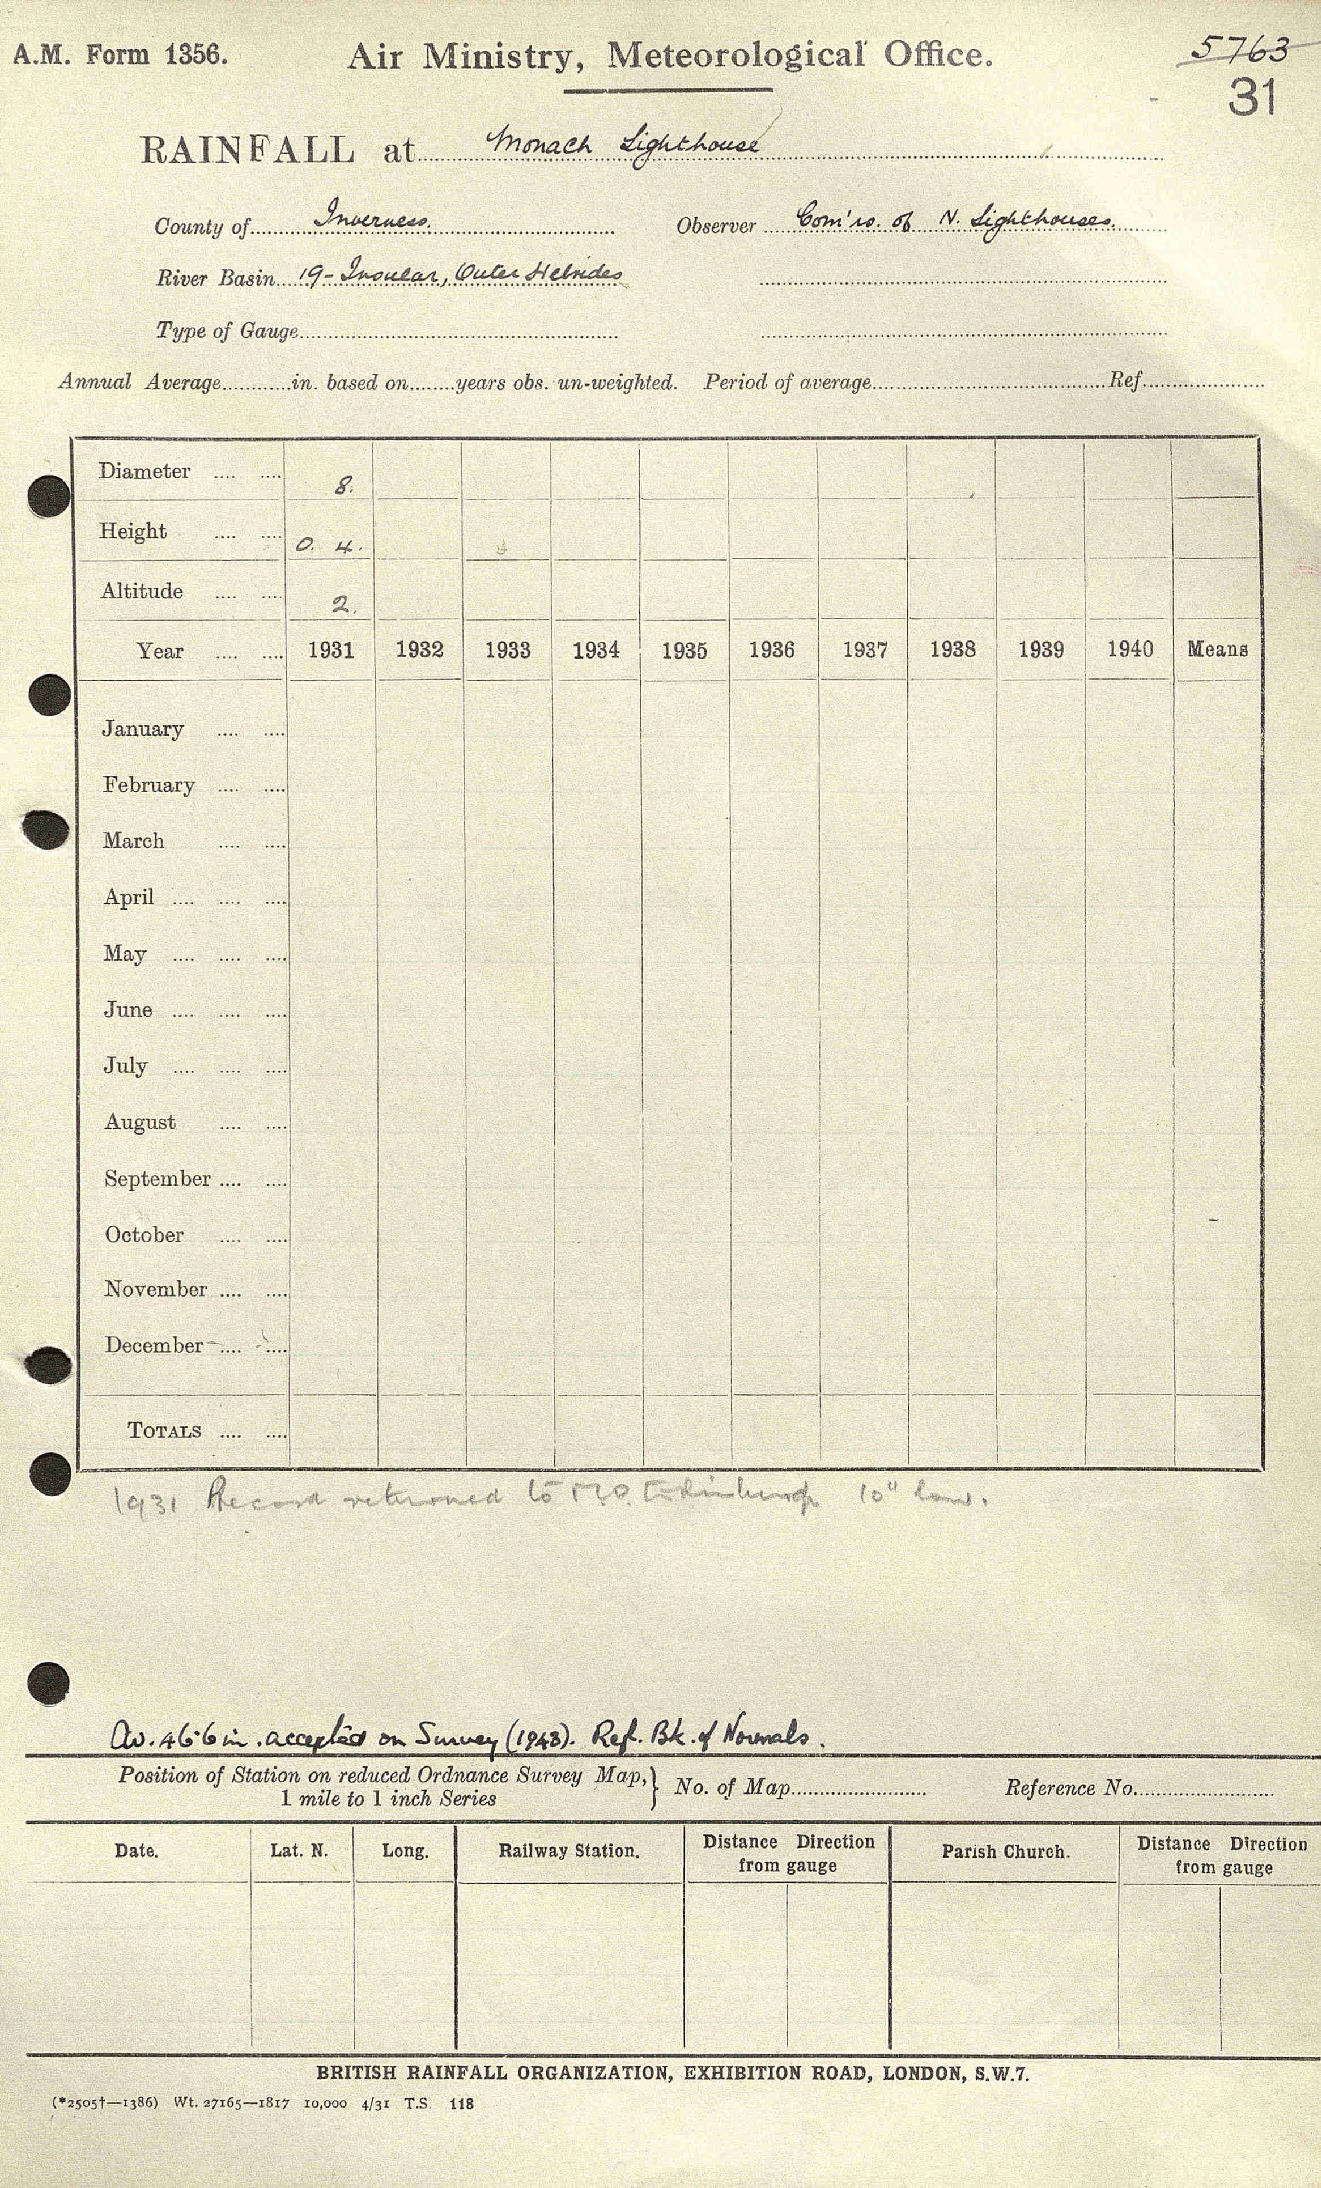 A.M. Form 1356.
Air Ministry, Meteorological Office.
5763
31
RAINFALL at Monach Lighthouse
County of Inverness. Observer Com'rs. of N. Lighthouses.
River Basin 19- Insular, Outer Hebrides
Type of Gauge
Annual Average in. based on years obs. un-weighted. Period of average Ref.
Diameter 8.
Height 0. 4.
Altitude 2.
Year 1931 1932 1933 1934 1935 1936 1937 1938 1939 1940 Means
January
February
March
April
May
June
July
August
September
October
November
December
TOTALS
1931 Record returned to M.O. Edinburgh 10" low.
Av. 46·6 in. accepted on Survey (1943). Ref. Bk. of Normals.
Position of Station on reduced Ordnance Survey Map, } No. of Map Reference No.
1 mile to 1 inch Series
Date. Lat. N. Long. Railway Station. Distance Direction from gauge Parish Church. Distance Direction from gauge
BRITISH RAINFALL ORGANIZATION, EXHIBITION ROAD, LONDON, S.W.7.
(*2505†—1386) Wt. 27165—1817 10,000 4/31 T.S. 118